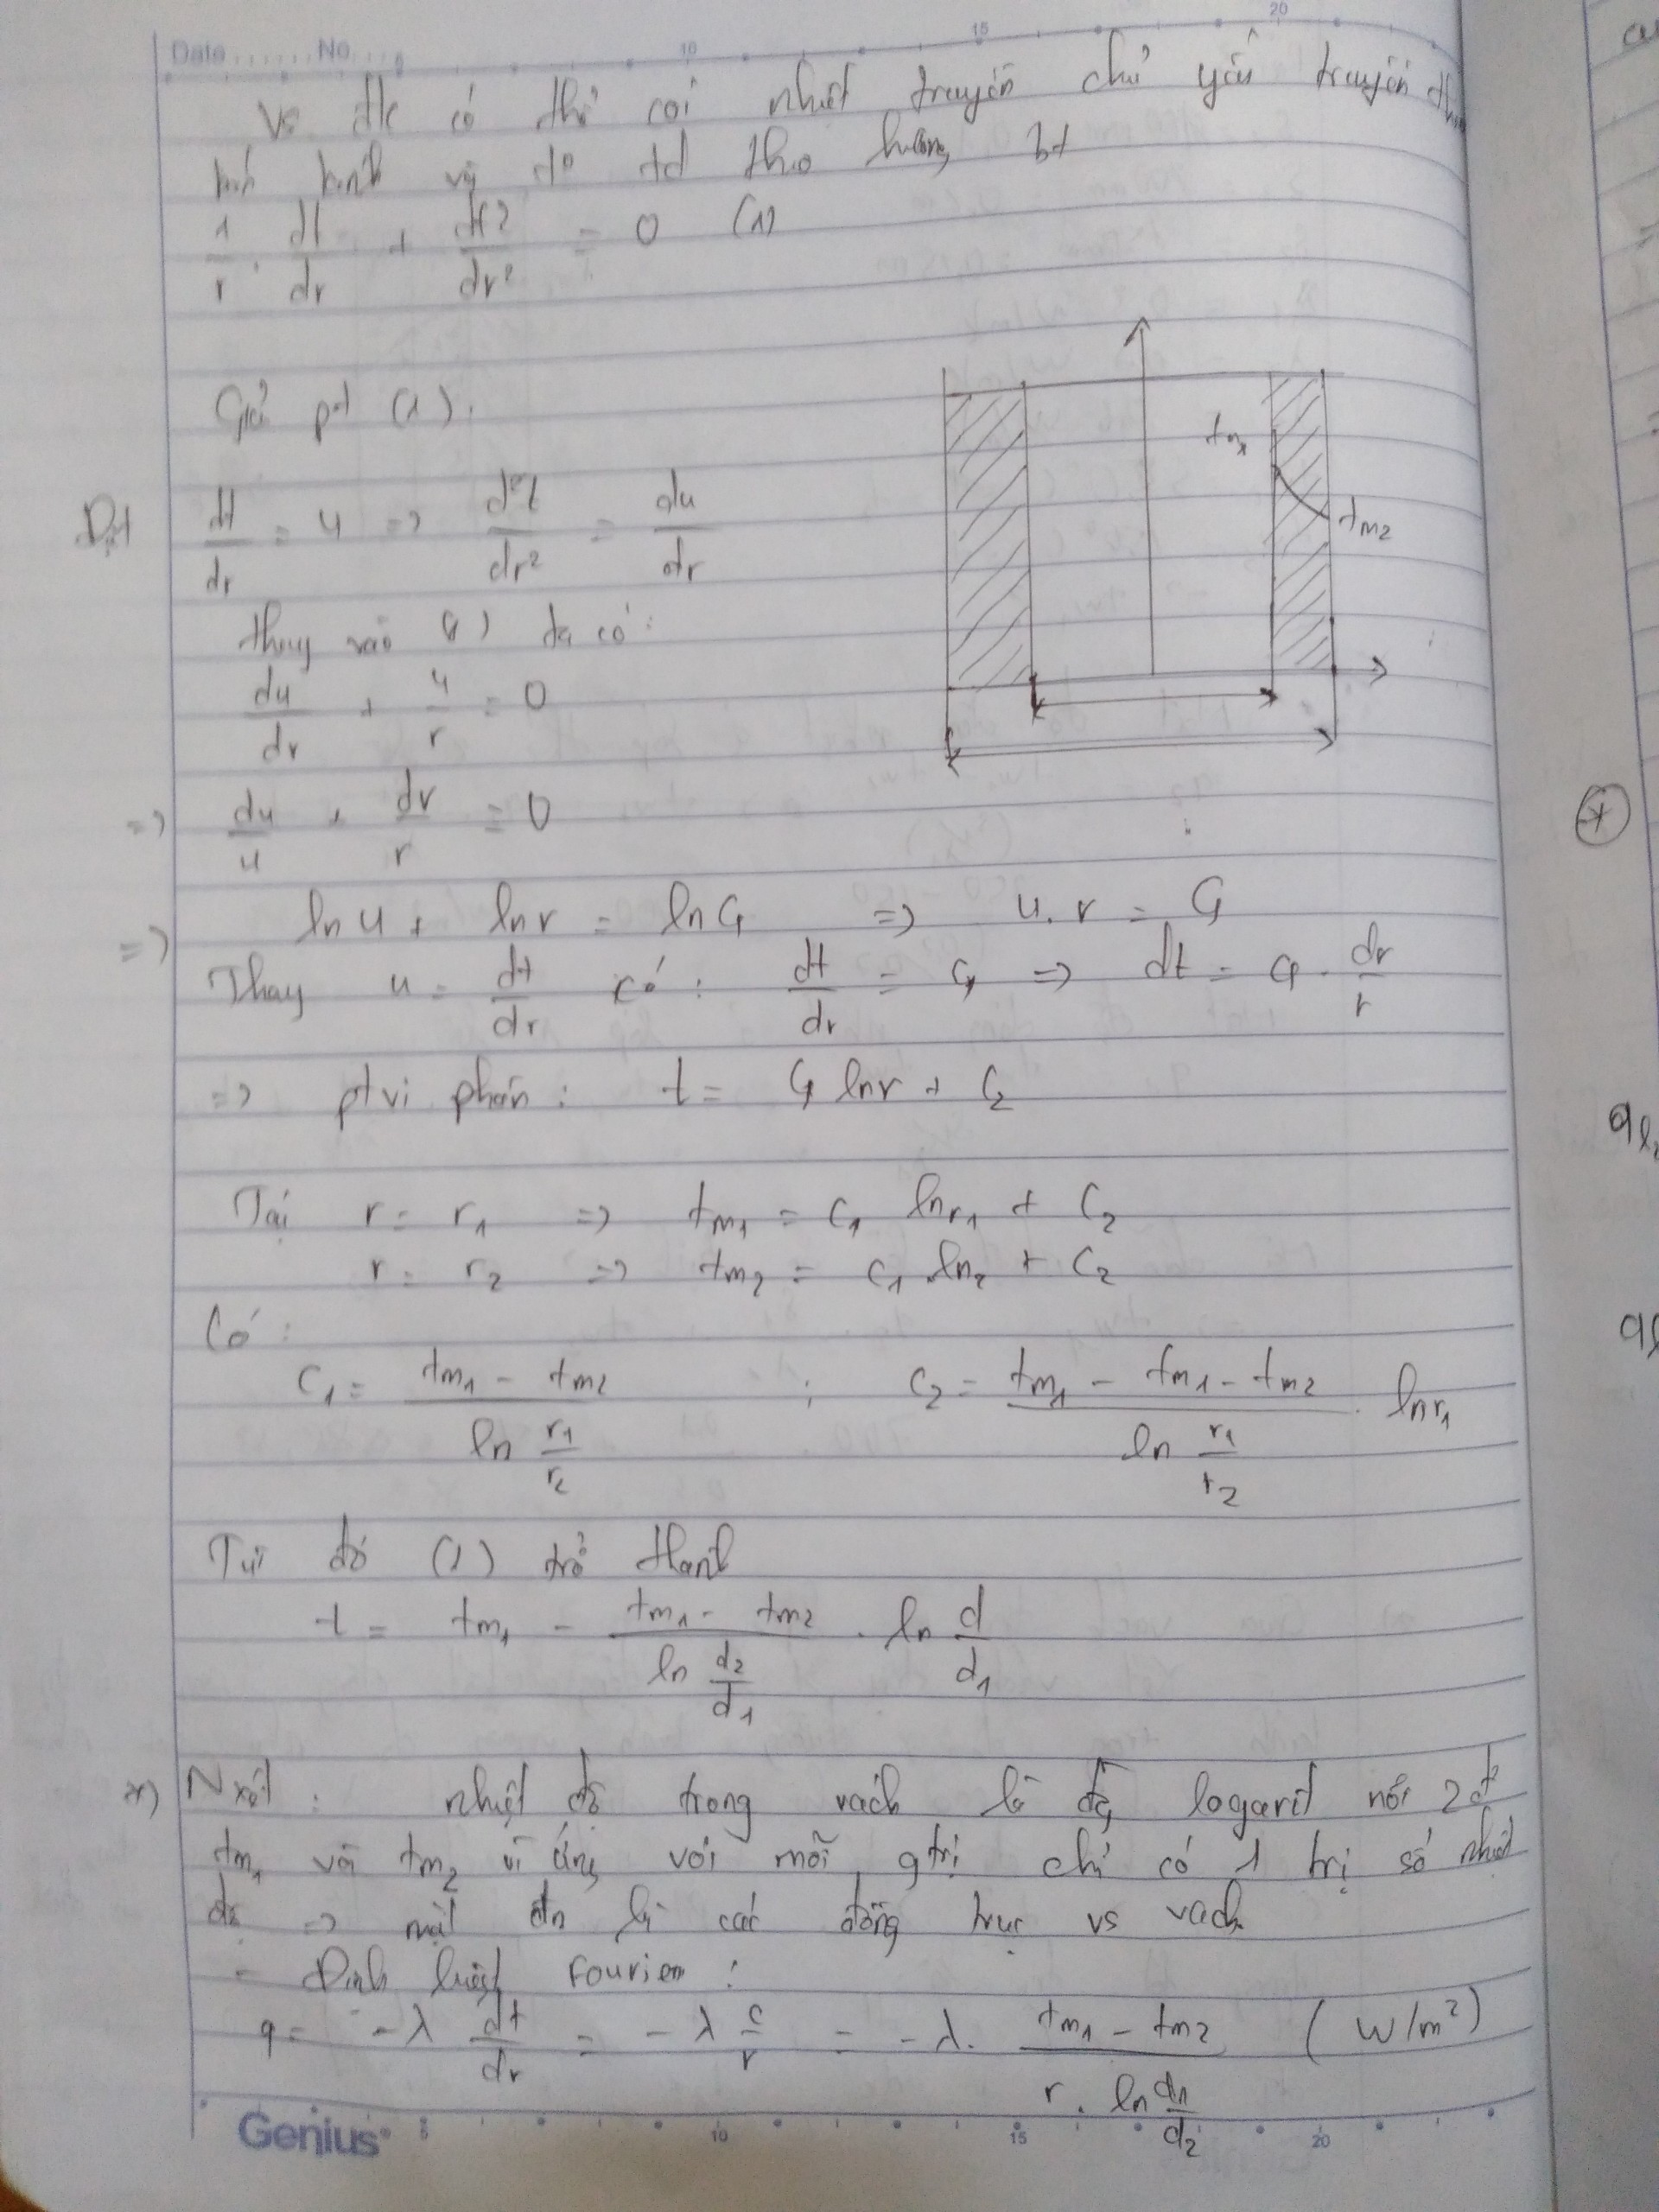 Date ...... No. ...
10 15 20
Vs đk có thể coi nhiệt truyền chủ yếu truyền
bán kính và to td theo hướng
1/r . dt/dr + dt2/dr2 = 0 (1)
Giải pt (1).
tm1
Đặt dt/dr = u => d2t/dr2 = du/dr
tm2
thay vào (1) ta có:
du/dr + u/r = 0
=> du/u + dr/r = 0
=> ln u + ln r = ln C1 => u. r = C1
Thay u = dt/dr có: dt/dr = C1 => dt = C1 . dr/r
=> pt vi phân: t = C1 ln r + C2
Tại r = r1 => tm1 = C1 ln r1 + C2
r = r2 => tm2 = C1 . ln2 + C2
Có:
C1 = (tm1 - tm2)/(ln r1/r2) ; C2 = (tm1 - tm1 - tm2)/(ln r1/r2) . ln r1
Từ đó (1) trở thành
t = tm1 - (tm1 - tm2)/(ln d2/d1) . ln d/d1
*) N xét: nhiệt độ trong vách là đg logarit nối 2 đ'
tm1 và tm2 vì ứng với mỗi gtrị chỉ có 1 trị số nhiệt
độ => mặt đn là các đồng trục vs vách
- Định luật Fourier:
q = -λ dt/dr = -λ c/r = -λ. (tm1 - tm2)/(r . ln d1/d2) (W/m2)
Genius 5 10 15 20